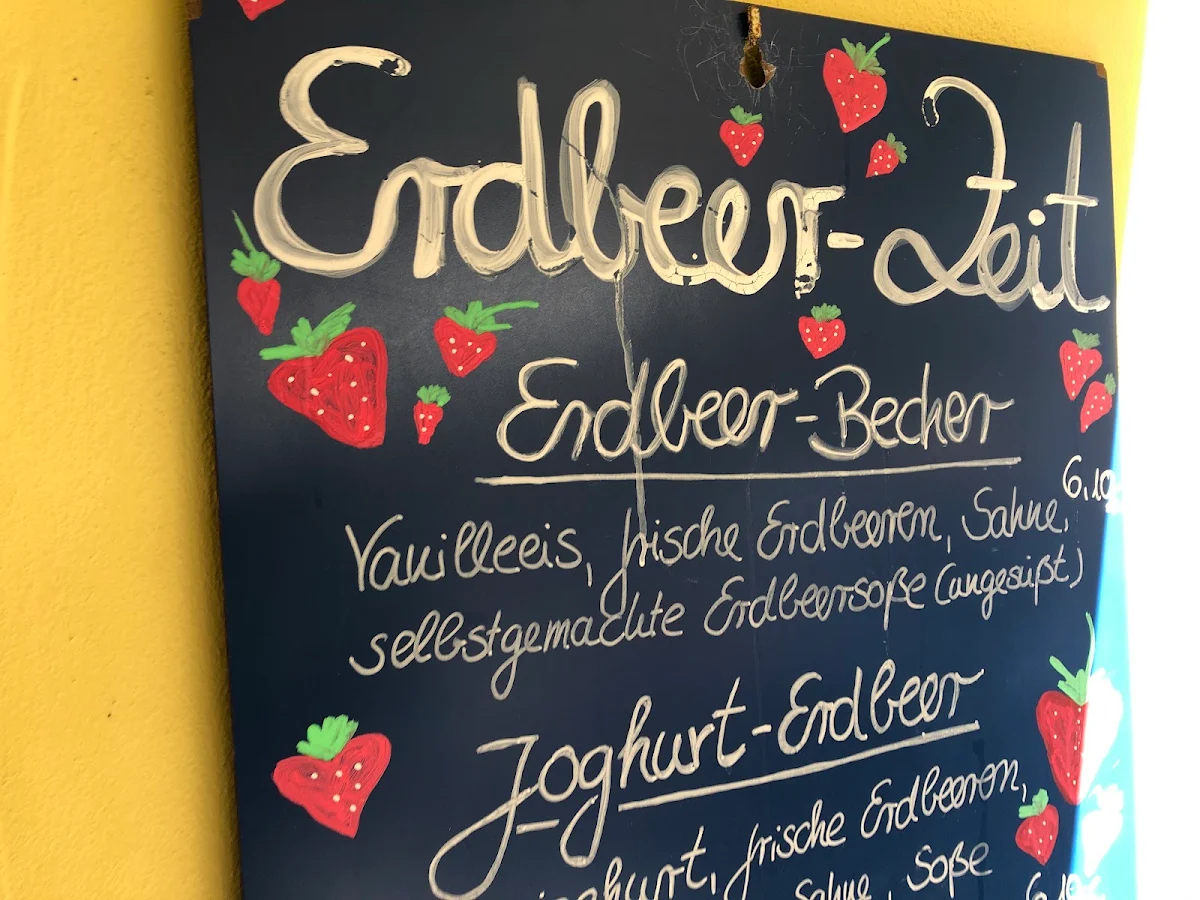 Erdbeer-Zeit
Erdbeer-Becher
6,10
Vanilleeis, frische Erdbeeren, Sahne,
selbstgemachte Erdbeersoße (angesüßt)
Joghurt-Erdbeer
frische Erdbeeren,
Sahne, Soße
6,10